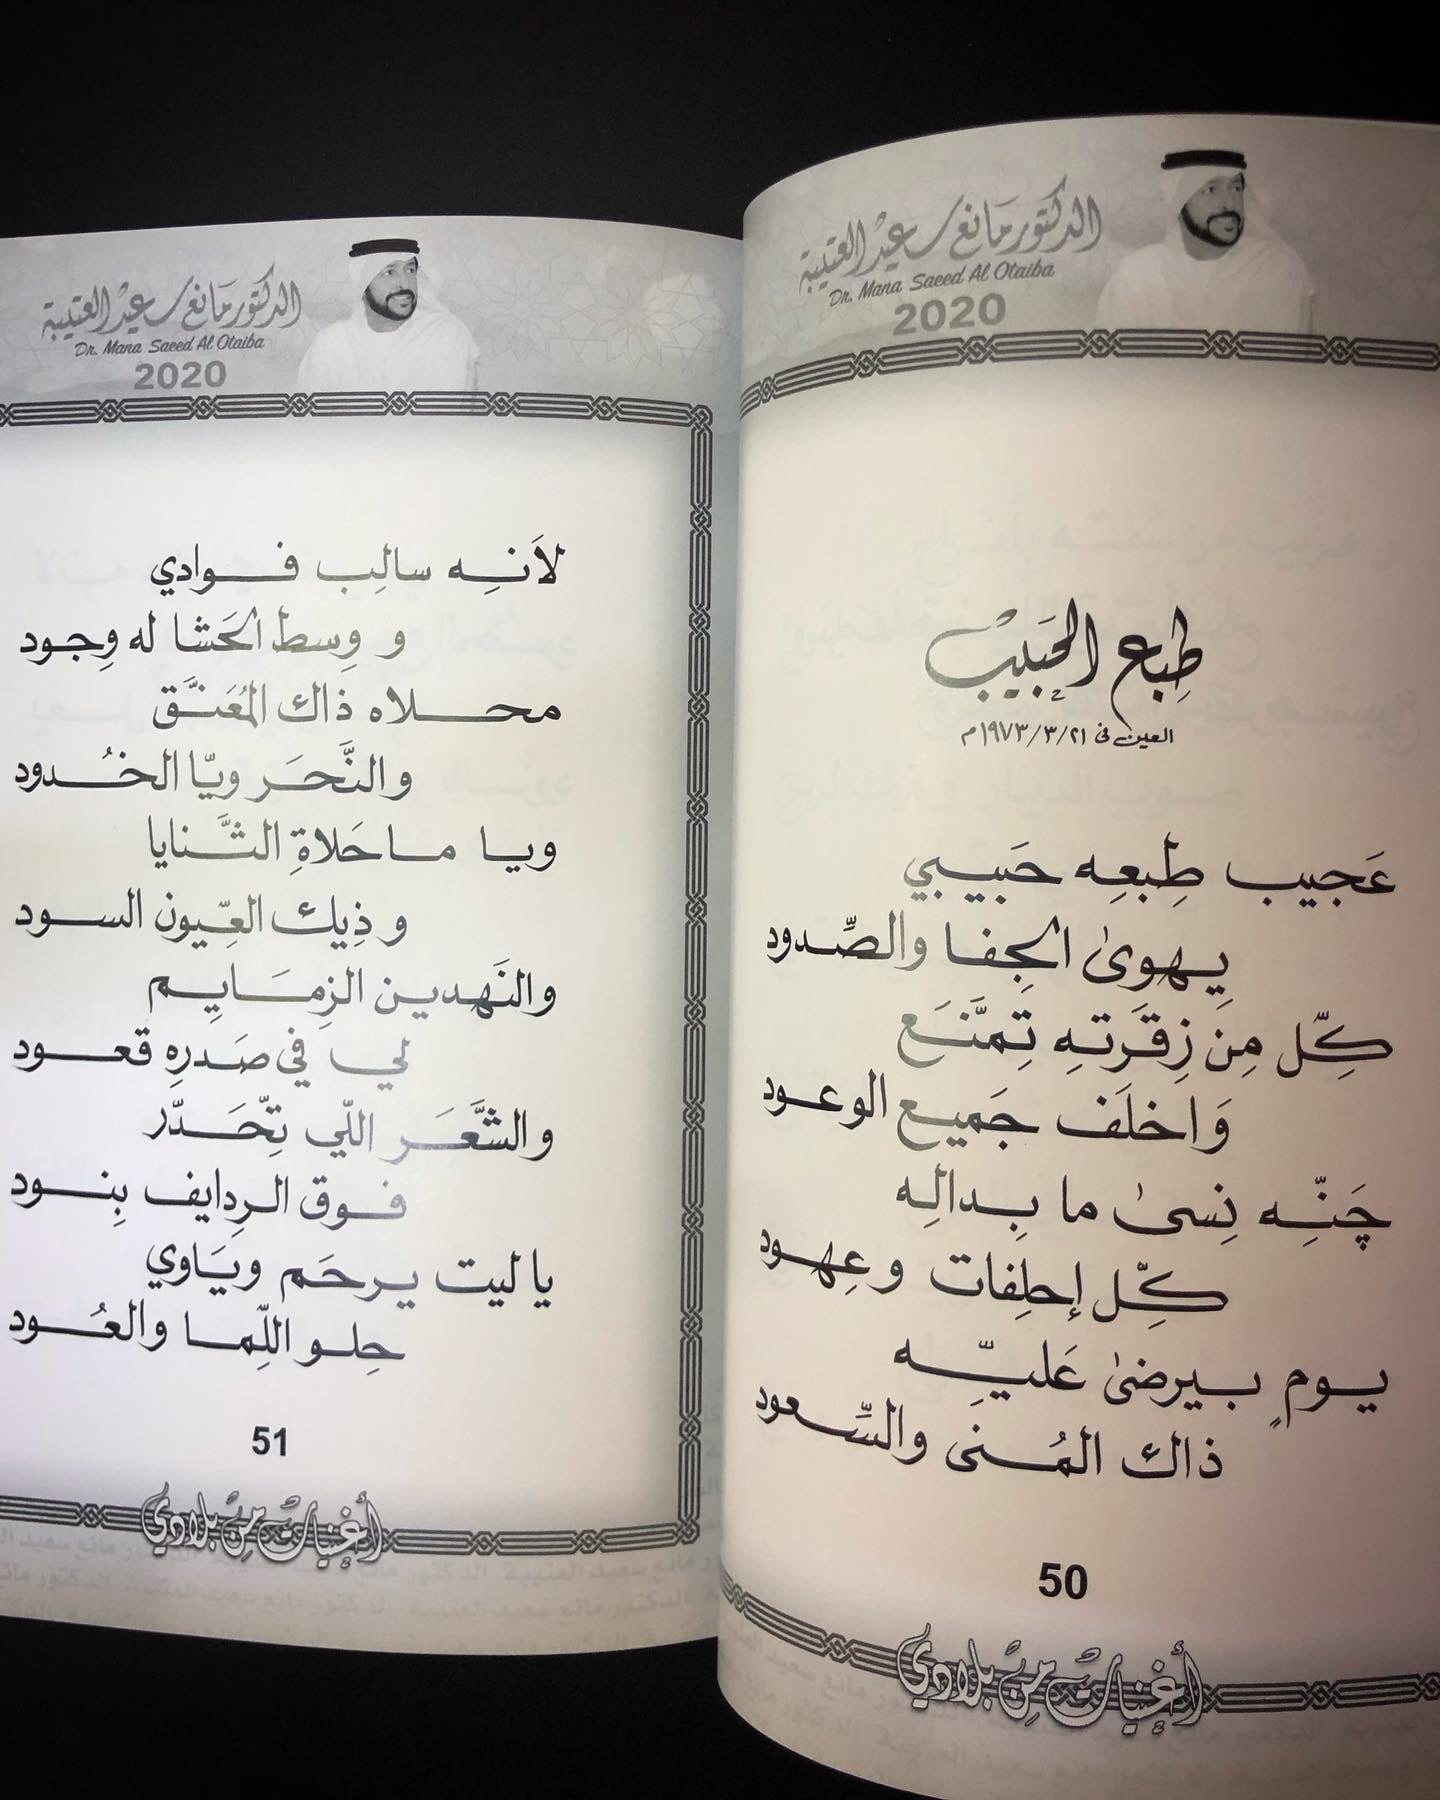 الدكتور مانع سعيد العتيبة
Dr. Mana Saeed Al Otaiba
2020
طِباع الحَبيبْ
العين في ٢١/٣/١٩٧٣م
عَجيب طِبعِه حَبيبي
يِهوىٰ الجِفا والصِّدود
كِّل مِن زِقَرَته تِمَنَّع
وَاخلَف جَميع الوعود
چَنِّه نِسىٰ ما بِدالِه
كِّل إحلِفات وعِهود
يومٍ بيرضىٰ عَليِّه
ذاك المُنىٰ والسِّعود
50
أغنيات من بلادي
الدكتور مانع سعيد العتيبة
Dr. Mana Saeed Al Otaiba
2020
لاَنِه سالِب فوادي
و وِسط الحَشا له وِجود
محلاه ذاك المُعَنَّق
والنَّحَر ويّا الخُدود
ويا ماحَلاةِ الثَّنايا
وذِيك العِّيون السود
والنَهدين الزِمَايِم
لي في صَدرِه قعود
والشَّعَر اللّي تِّحَدّر
فوق الرِدايف بِنود
ياليت يرحَم ويَاوي
حِلو اللِّما والعُود
51
أغنيات من بلادي